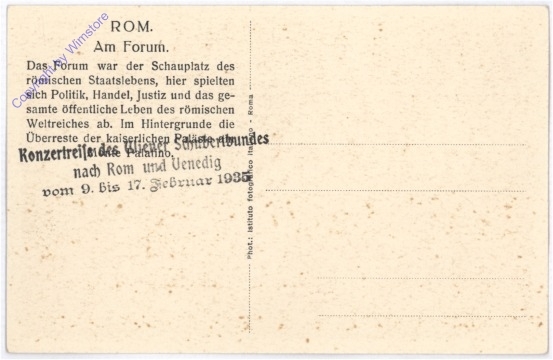 ROM.
Am Forum.
Das Forum war der Schauplatz des
römischen Staatslebens, hier spielten
sich Politik, Handel, Justiz und das ge-
samte öffentliche Leben des römischen
Weltreiches ab. Im Hintergrunde die
Überreste der kaiserlichen Paläste
Palatino.
Konzertreise des Wiener Schubertbundes
nach Rom und Venedig
vom 9. bis 17. Februar 1935
Phot.: Istituto fotografico Italiano - Roma
Copyright by Wimstore